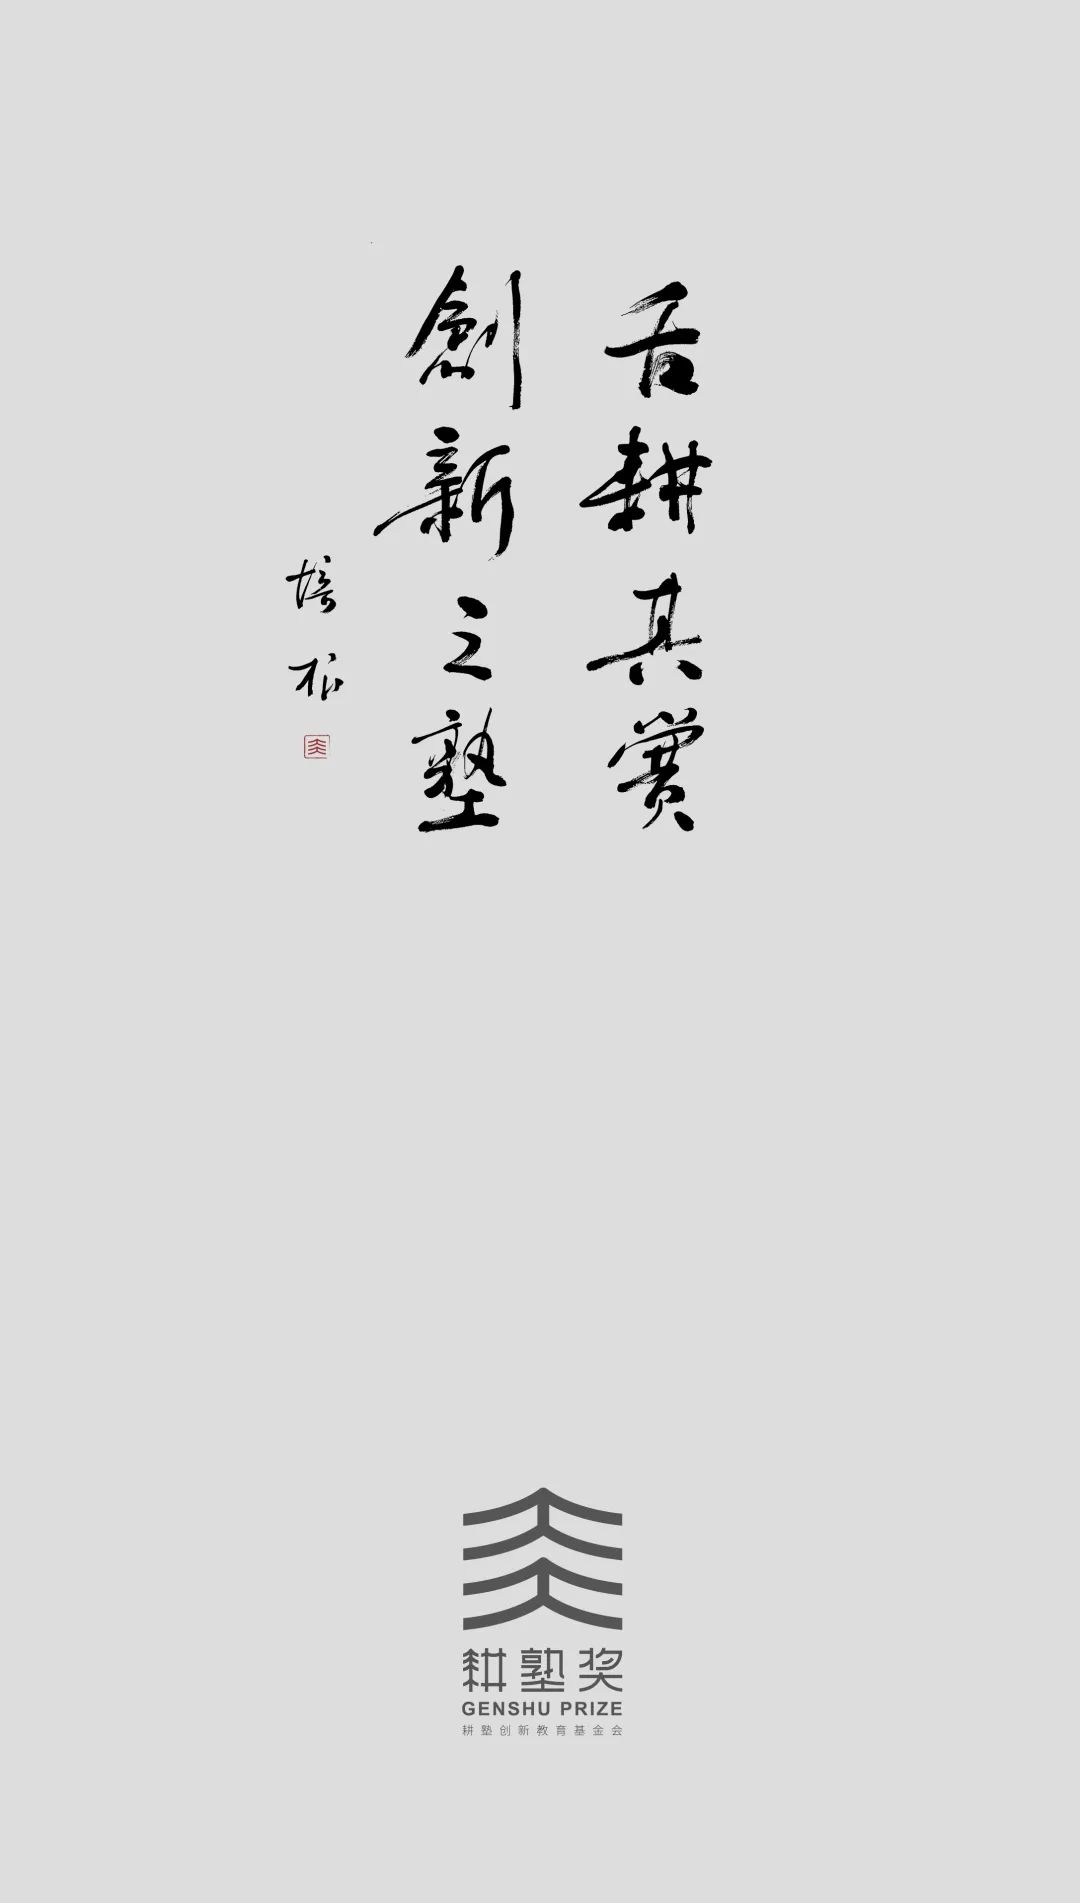 舌耕其賞
創新之塾
培根
耕塾奖
GENSHU PRIZE
耕塾创新教育基金会